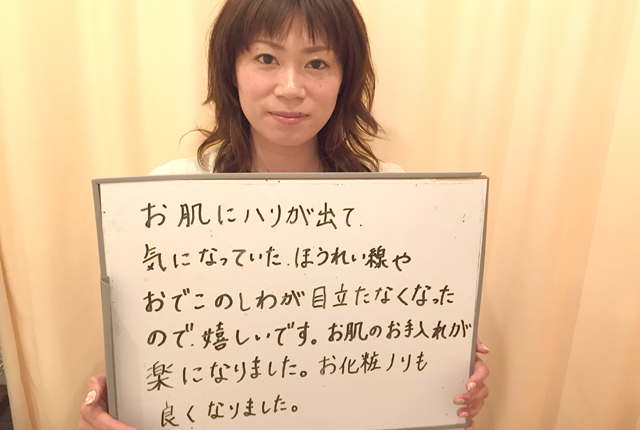 お肌にハリが出て、
気になっていた、ほうれい線や
おでこのしわが目立たなくなった
ので、嬉しいです。お肌のお手入れが
楽になりました。お化粧ノリも
良くなりました。